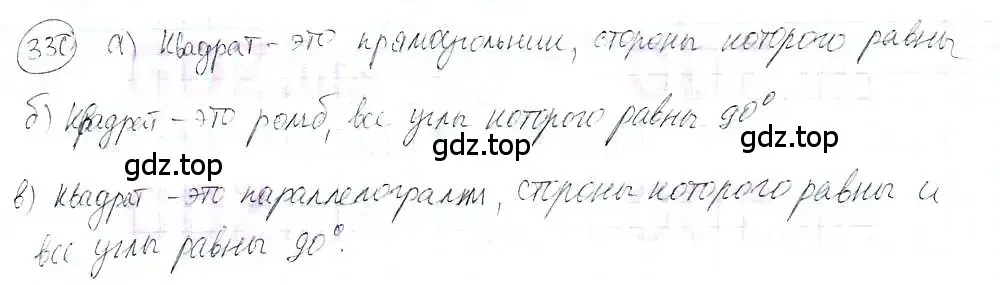 330 а) Квадрат - это прямоугольник, стороны которого равны
б) Квадрат - это ромб, все углы которого равны 90°
gdz.top
gdz.top
в) Квадрат - это параллелограмм, стороны которого равны и
все углы равны 90°.
gdz.top
gdz.top